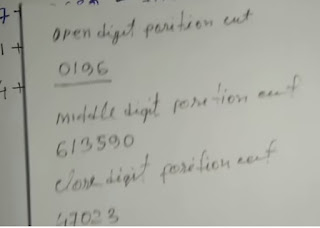 7+
open digit position cut
1+
0196
4+
middle digit position cut
613590
close digit position cut
47023